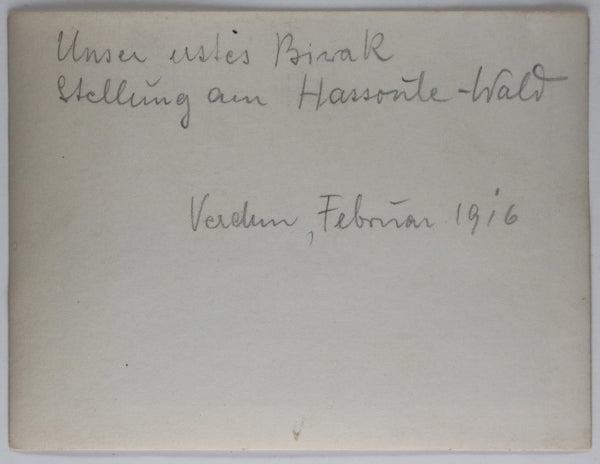 Unser erstes Biwak
Stellung am Hassoule-Wald
Verdun, Februar 1916